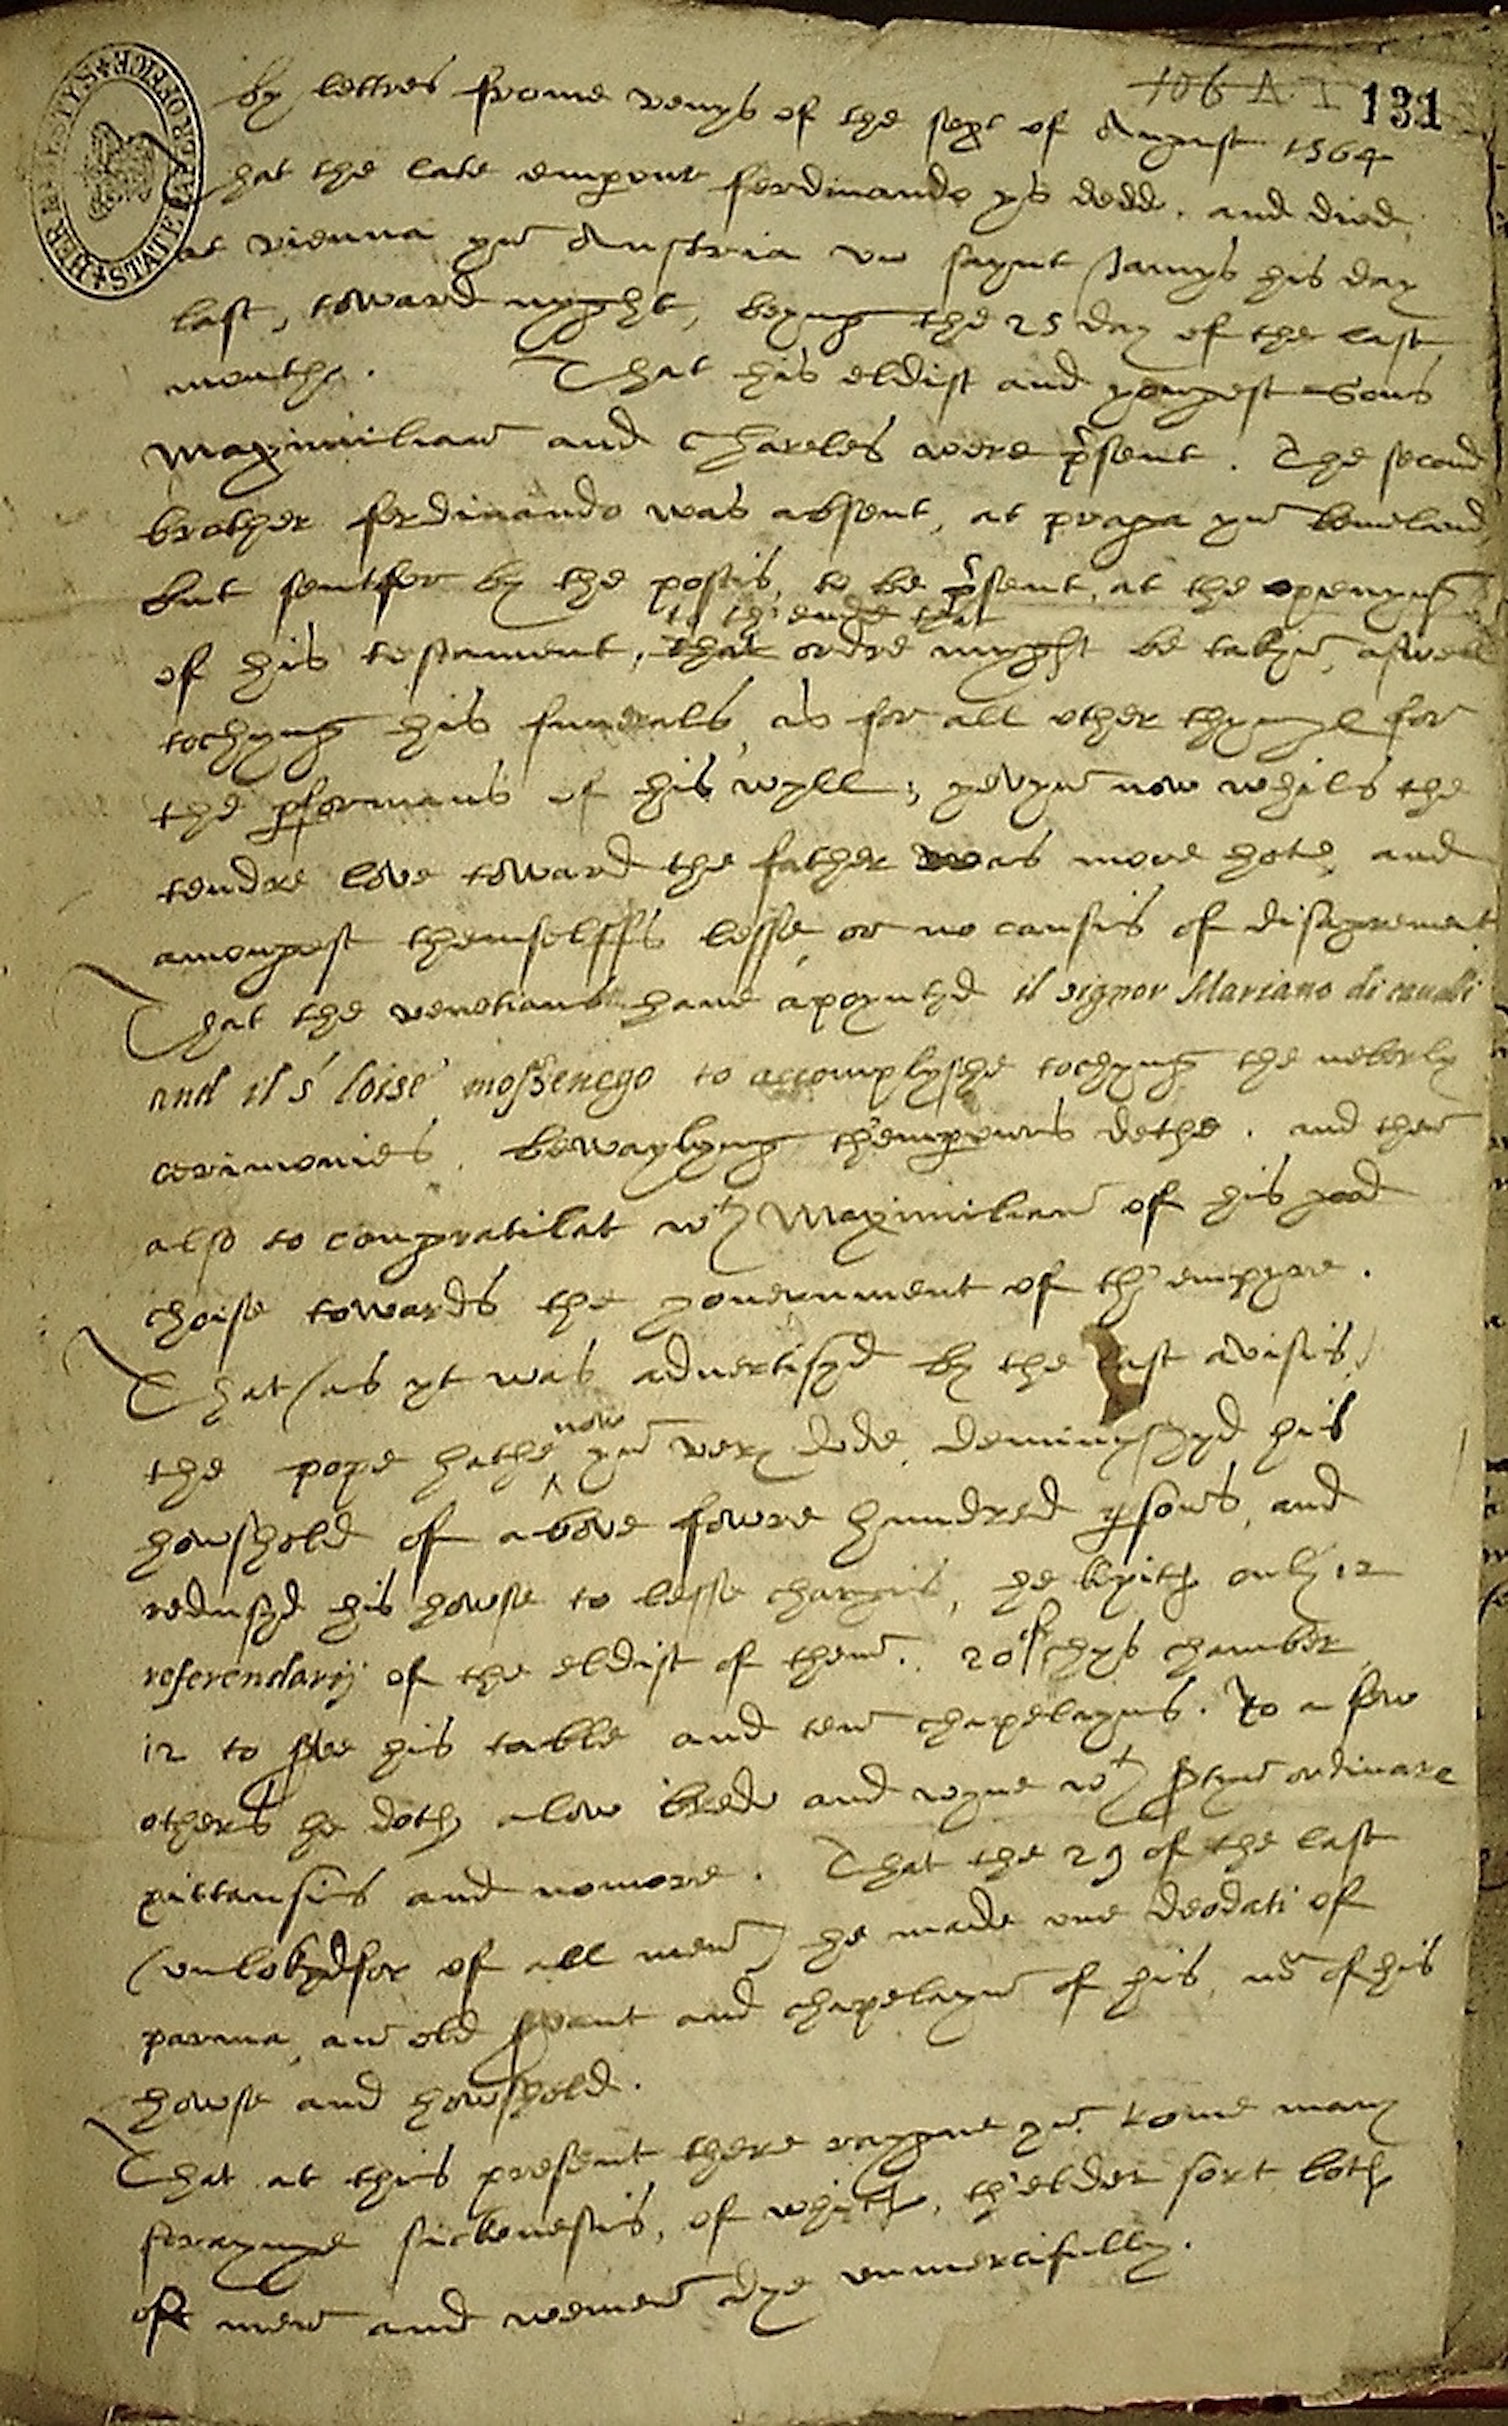 106 A I 131
HER MAJESTYS STATE PAPER OFFICE
by lettres frome venys of the sext of August 1564
That the late emperour ferdinando ys dedd, and died
at vienna yn Austria on saynt Jamys his day
last, toward nyght, beyng the 25 day of the last
monthe. That his eldist and yongest sons
Maximilian and Chareles were present. The second
brother ferdinando was absent, at praga yn bemeland
but sent for by the postis, to be present, at the openyng
to th'ende that
of his testament, that ordre myght be takyn, aswell
tochyng his funerals, as for all other thynges for
the performans of his wyll; yevyn now whils the
tendre love toward the father was more hote, and
amongest themselffs lesse or no causis of disagrement
That the venetians have apoyntyd il signor Mariano di cavalli
and il s' loise mossenego to accomplyshe tochyng the
cerimonies, bewaylyng th'emperours dethe. and then
also to congratilat wth Maximilian of his good
choise towards the government of th'empyre.
That (as yt was advertisyd by the last avisis)
now
the pope hathe yn very dede deminyshyd his
howshold of above fowre hundred persons, and
redusyd his howse to lesse chargis, he kepith only 12
referendarij of the eldist of them. 20 of hys chamber
12 to serve his table and ten chapelayns. To a few
others he doth alow bredd and wyne wth certyn ordinare
pittansis and nomore. That the 29 of the last
(unlokydfor of all men) he made one Deodati of
parma, an old servant and chapelayn of his, mr of his
howse and howshold.
That at this present there raygne yn Rome many
straynge sicknessis, of which, th'elder sort both
of men and wemen dye unmercifully.